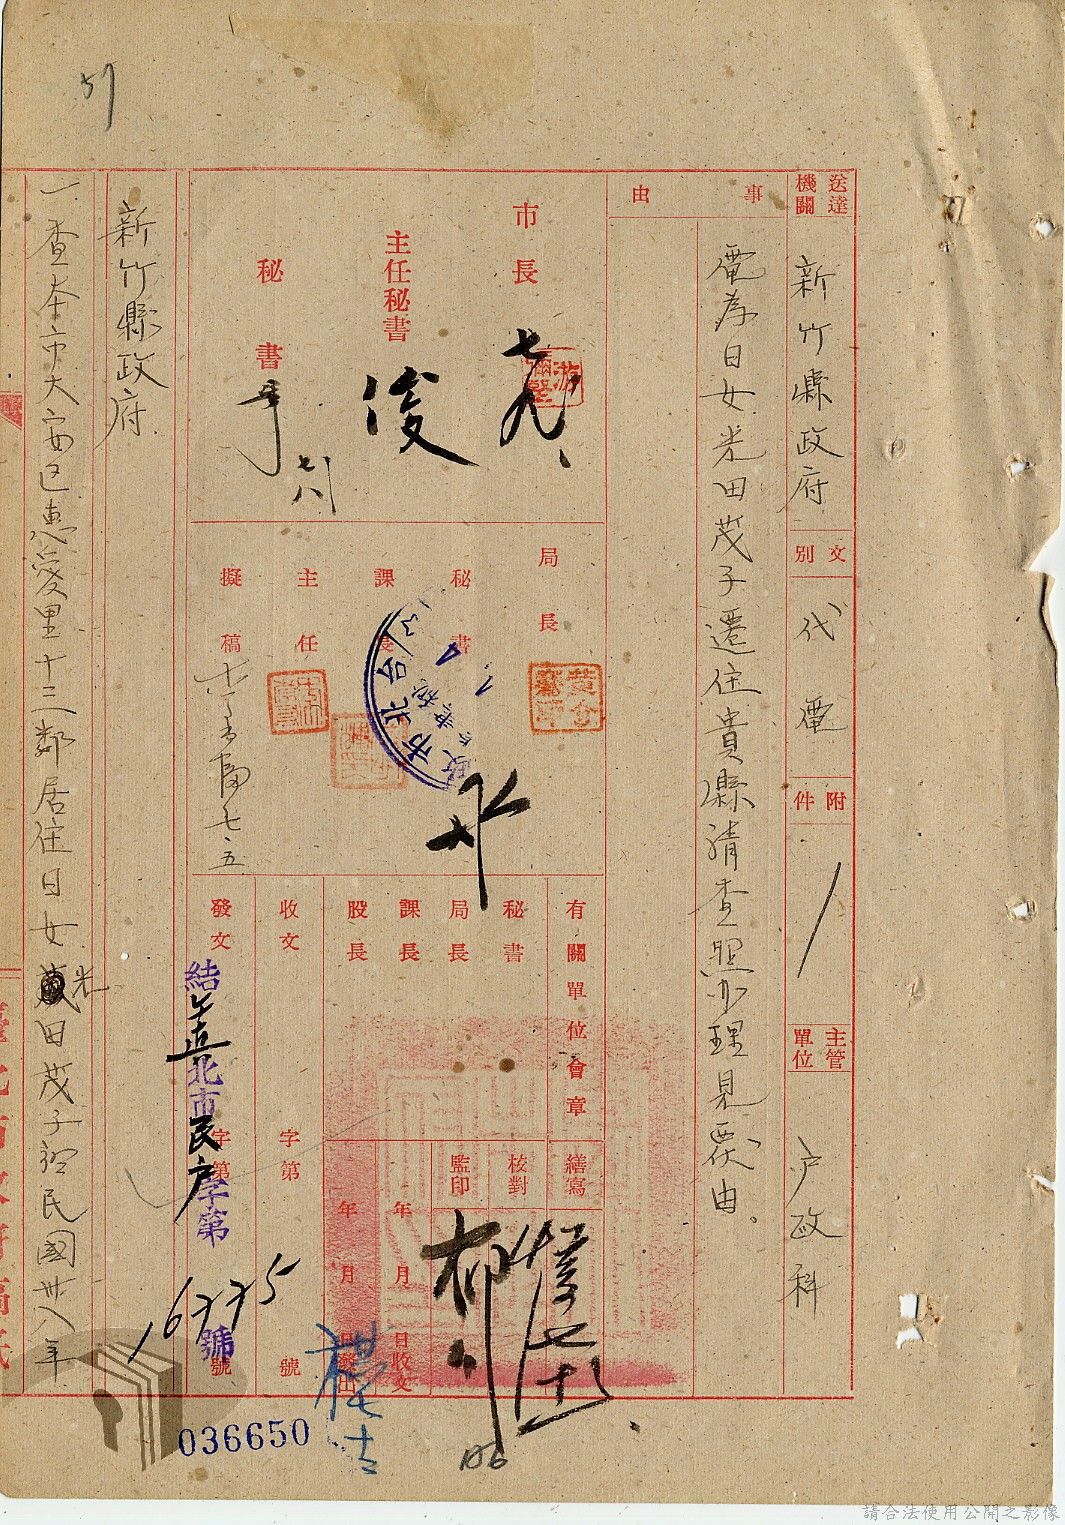 送達機關
新竹縣政府
文別
代電
附件
主管單位
户政科
事由
電為日女光田茂子遷住貴縣請查照办理見覆由
市長
游彌堅
主任秘書
俊
秘書
局長
秘書
課長
主任
擬稿
七.五
有關單位會章
秘書
局長
課長
股長
繕寫
核對
監印
年月日收文
年月日發出
收文
字第
號
發文
字第
號
北市民户字第
16775
號
036650
新竹縣政府
一查本市大安区惠愛里十三鄰居住日女光田茂子經民國卅八年
51
106
請合法使用公開之影像